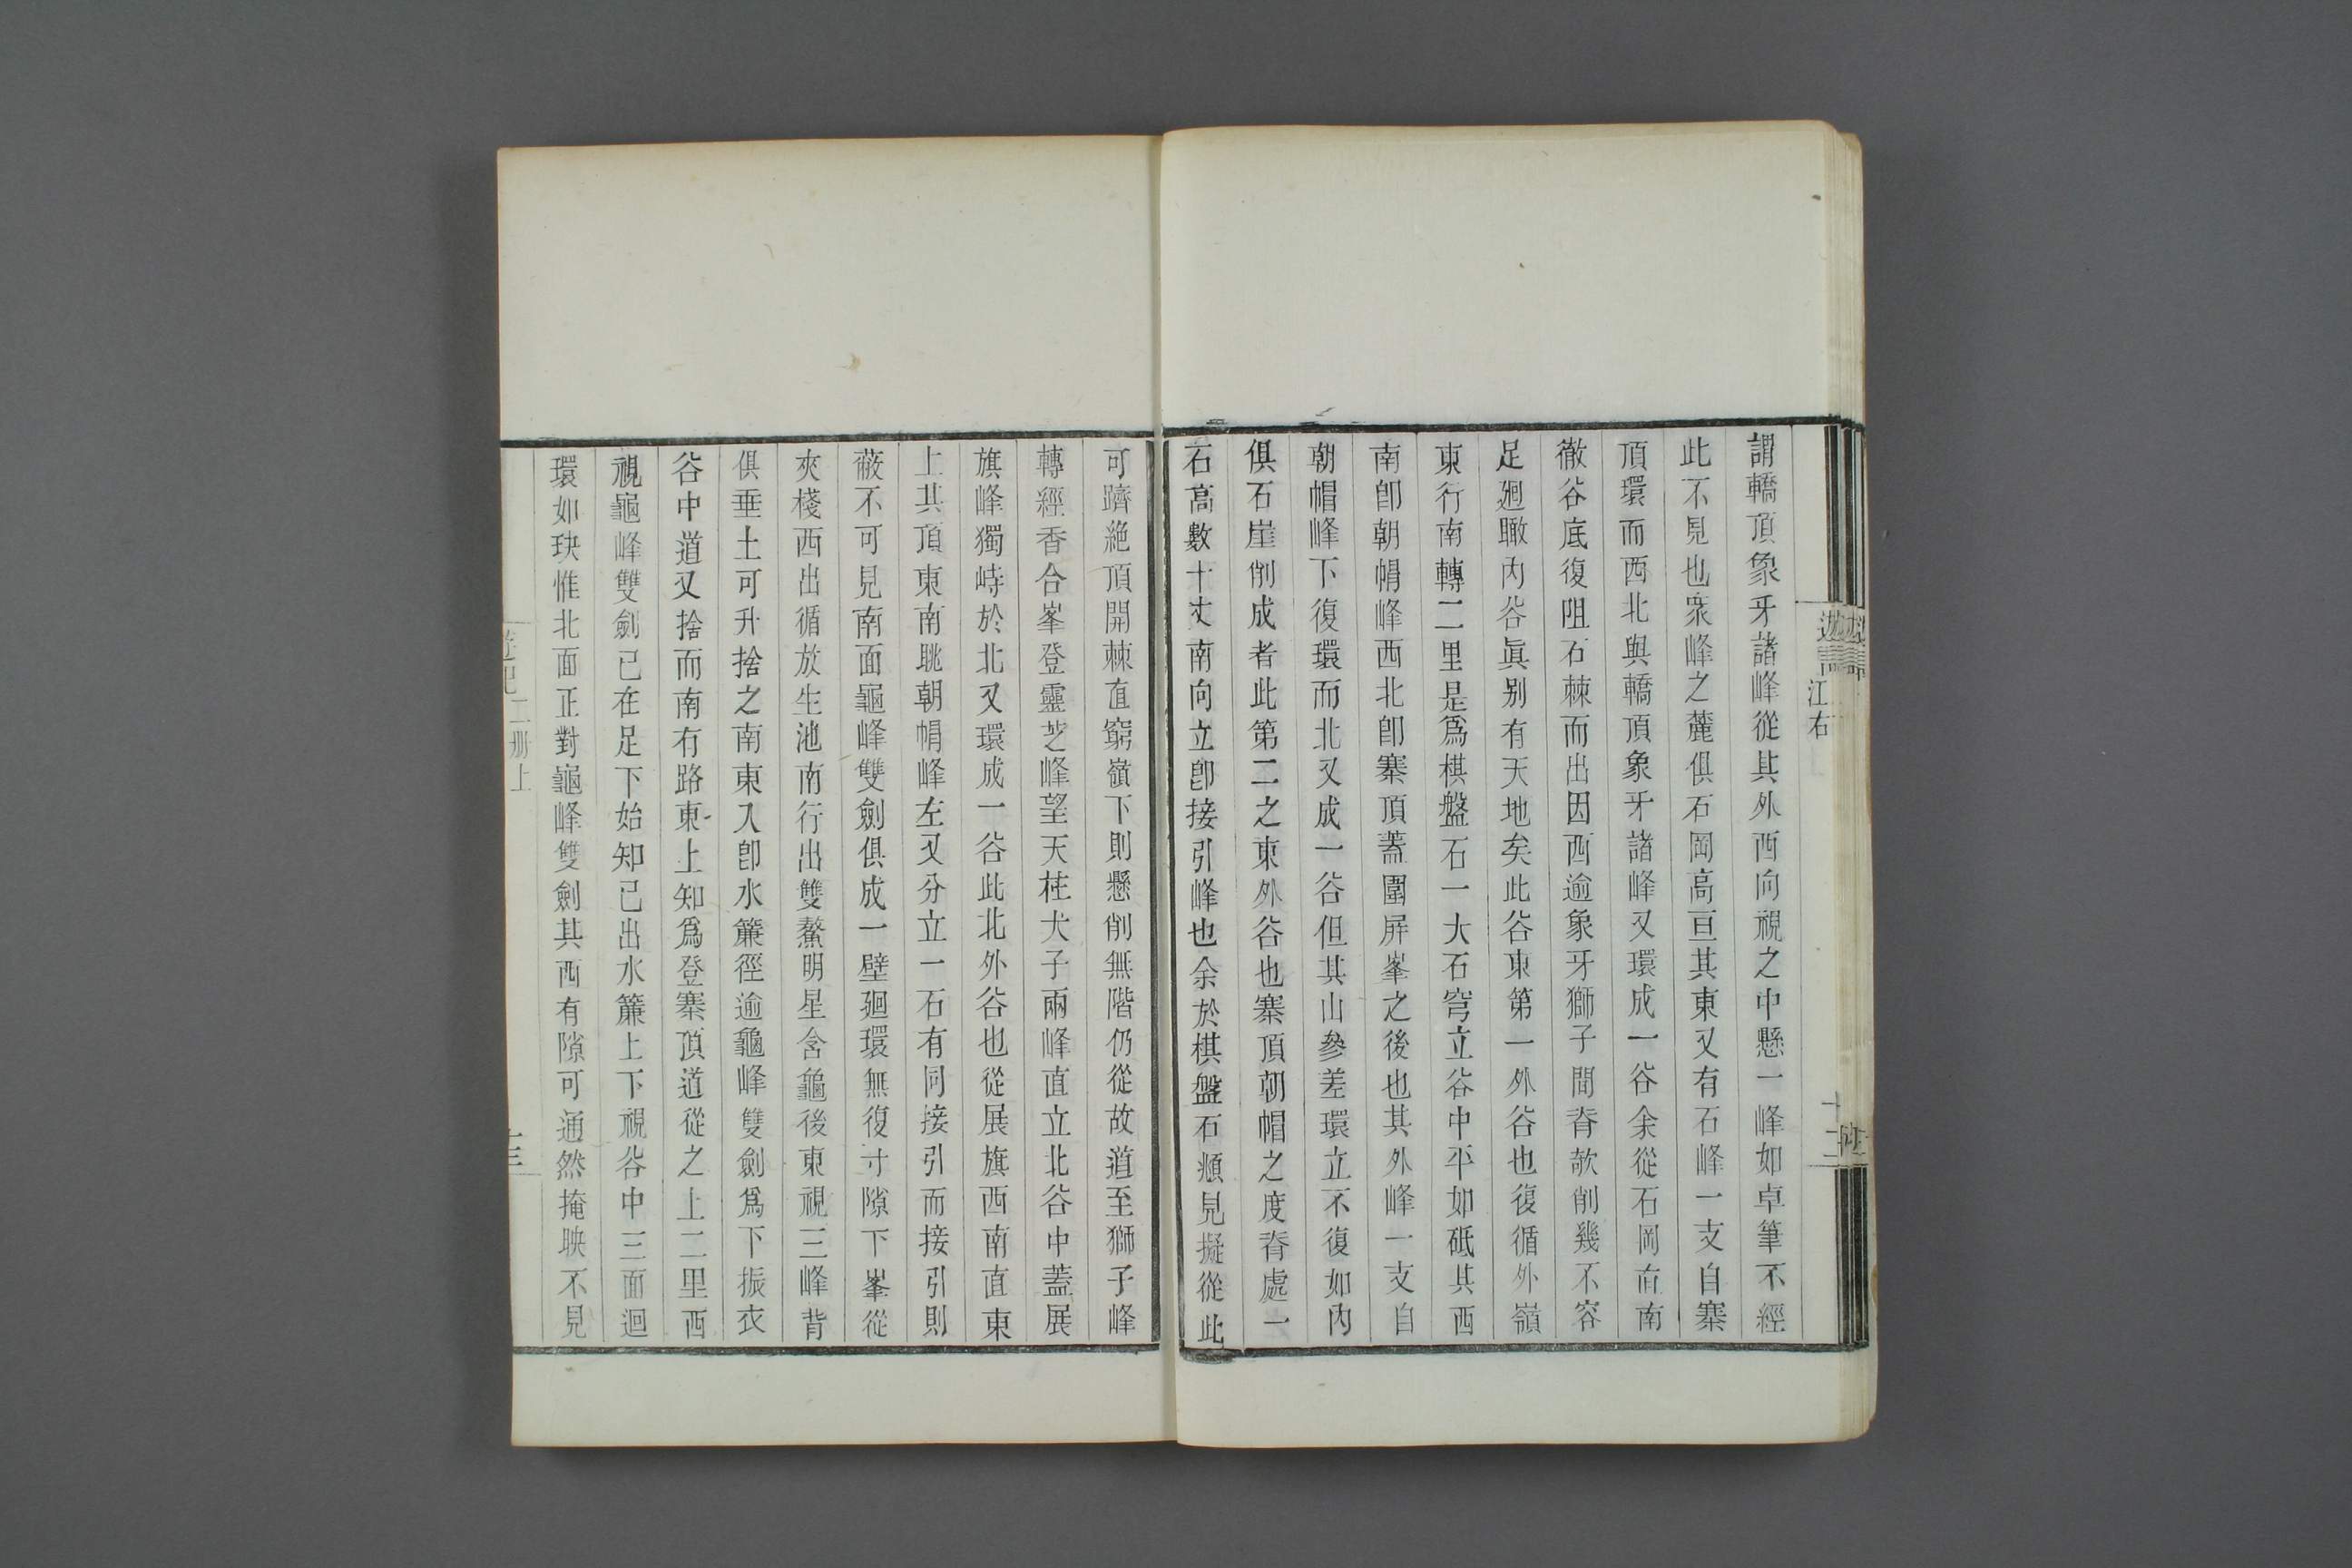 江右
謂轎頂象牙諸峰從其外西向視之中懸一峰如卓筆不經
此不見也衆峰之麓俱石岡高亘其東又有石峰一支自寨
頂環而西北與轎頂象牙諸峰又環成一谷余從石岡直南
徹谷底復阻石棘而出因西逾象牙獅子間脊欹削幾不容
足廻瞰內谷眞別有天地矣此谷東第一外谷也復循外嶺
東行南轉二里是爲棋盤石一大石穹立谷中平如砥其西
南卽朝帽峰西北卽寨頂蓋圍屏峯之後也其外峰一支自
朝帽峰下復環而北又成一谷但其山參差環立不復如內
俱石崖削成者此第二之東外谷也寨頂朝帽之度脊處一
石高數十丈南向立卽接引峰也余於棋盤石頫見擬從此
可躋絶頂開棘直窮嶺下則懸削無階仍從故道至獅子峰
轉經香合峯登靈芝峰望天柱犬子兩峰直立北谷中蓋展
旗峰獨峙於北又環成一谷此北外谷也從展旗西南直東
上其頂東南眺朝帽峰左又分立一石有同接引而接引則
蔽不可見南面龜峰雙劍俱成一壁廻環無復寸隙下峯從
夾棧西出循放生池南行出雙鰲明星含龜後東視三峰背
俱垂土可升捨之南東入卽水簾徑逾龜峰雙劍爲下振衣
谷中道又捨而南有路東上知爲登寨頂道從之上二里西
視龜峰雙劍已在足下始知已出水簾上下視谷中三面迴
環如玦惟北面正對龜峰雙劍其西有隙可通然掩映不見
遊記二册上